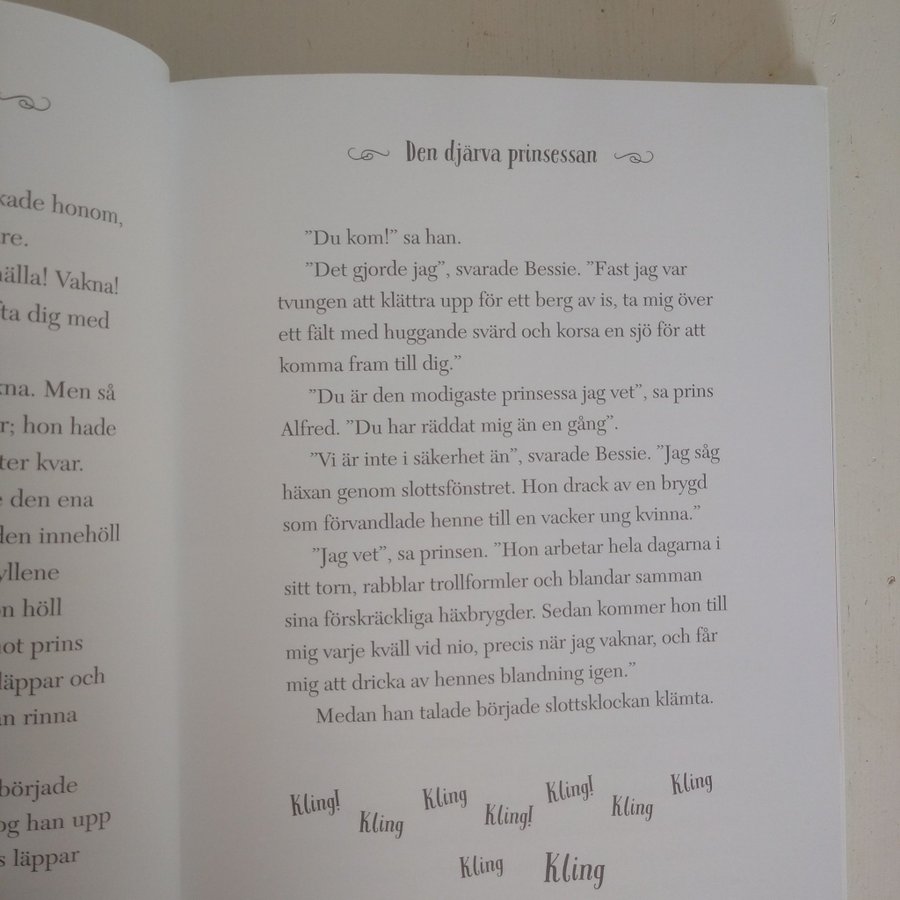 kade honom,
re.
älla! Vakna!
ta dig med
kna. Men så
r; hon hade
ter kvar.
e den ena
den innehöll
yllene
on höll
not prins
läppar och
an rinna
började
og han upp
s läppar
Den djärva prinsessan
”Du kom!” sa han.
”Det gjorde jag”, svarade Bessie. ”Fast jag var
tvungen att klättra upp för ett berg av is, ta mig över
ett fält med huggande svärd och korsa en sjö för att
komma fram till dig.”
”Du är den modigaste prinsessa jag vet”, sa prins
Alfred. ”Du har räddat mig än en gång”.
”Vi är inte i säkerhet än”, svarade Bessie. ”Jag såg
häxan genom slottsfönstret. Hon drack av en brygd
som förvandlade henne till en vacker ung kvinna.”
”Jag vet”, sa prinsen. ”Hon arbetar hela dagarna i
sitt torn, rabblar trollformler och blandar samman
sina förskräckliga häxbrygder. Sedan kommer hon till
mig varje kväll vid nio, precis när jag vaknar, och får
mig att dricka av hennes blandning igen.”
Medan han talade började slottsklockan klämta.
Kling! Kling Kling Kling! Kling! Kling Kling
Kling Kling